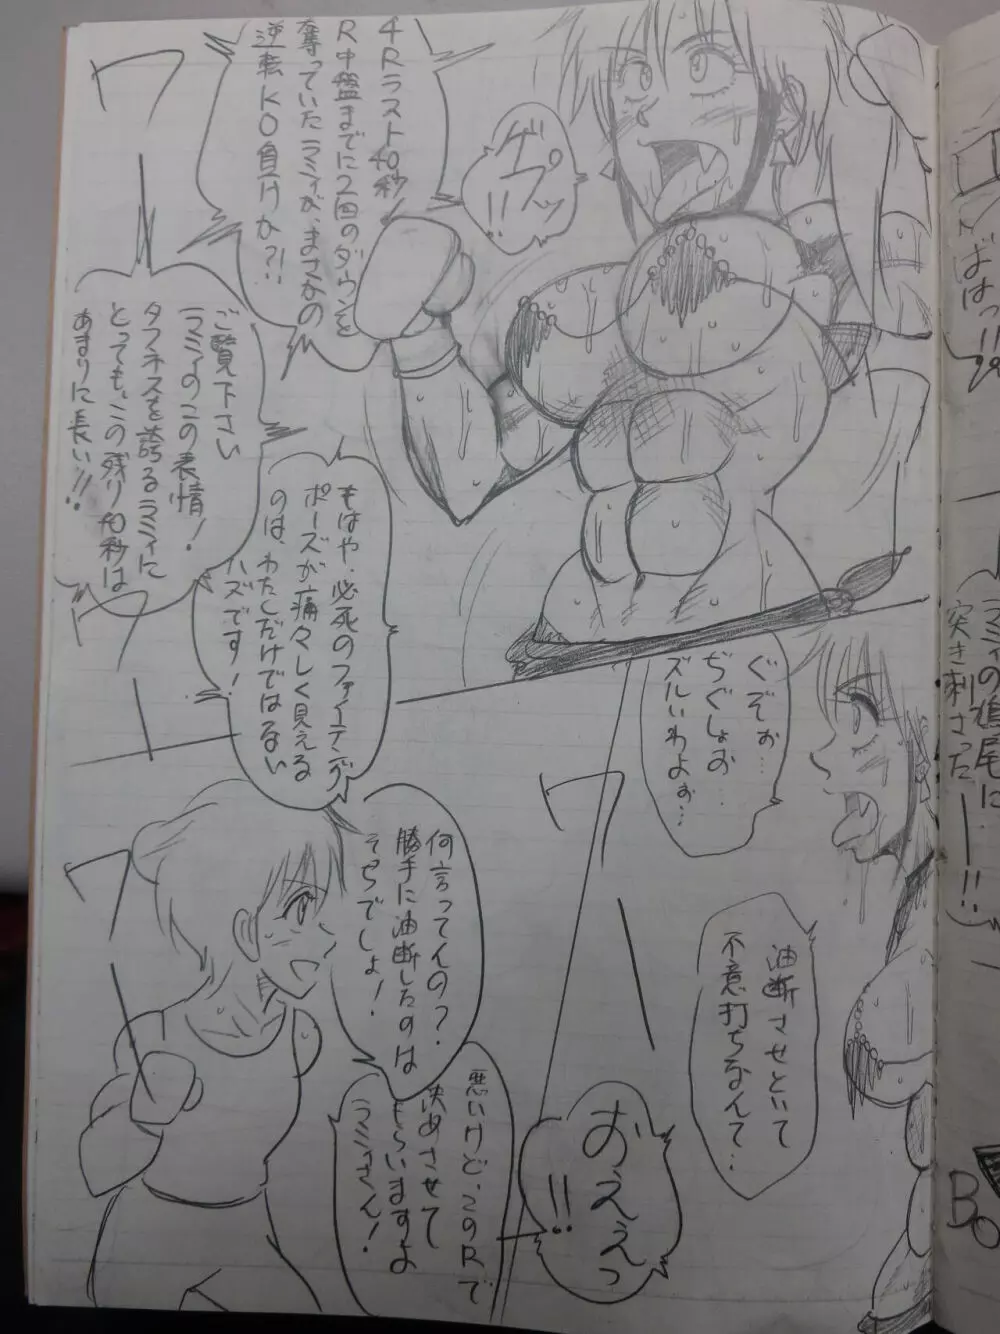 4Rラスト40秒!
R中盤までに2回のダウンを
奪っていたラミィが、まさかの
逆転KO負けか?!!
ゲプッ!!
ご覧下さい
ラミィのこの表情!
タフネスを誇るラミィに
とっても、この残り40秒は
あまりに長い!!!
もはや、必死のファイティング
ポーズが痛々しく見える
のは、わたしだけではない
ハズです!
ワー
ワー
ワー
ワー
ぐぞぉ…
ぢぐしょお…
ズルいわよぉ…
油断させといて
不意打ちなんて…
おえぇっ!!
何言ってんの?
勝手に油断したのは
そっちでしょ!
悪いけど、このRで
決めさせて
もらいますよ
ラミィさん!
ばはっ!!
ラミィの鳩尾に
突き刺さったー!!
Bo